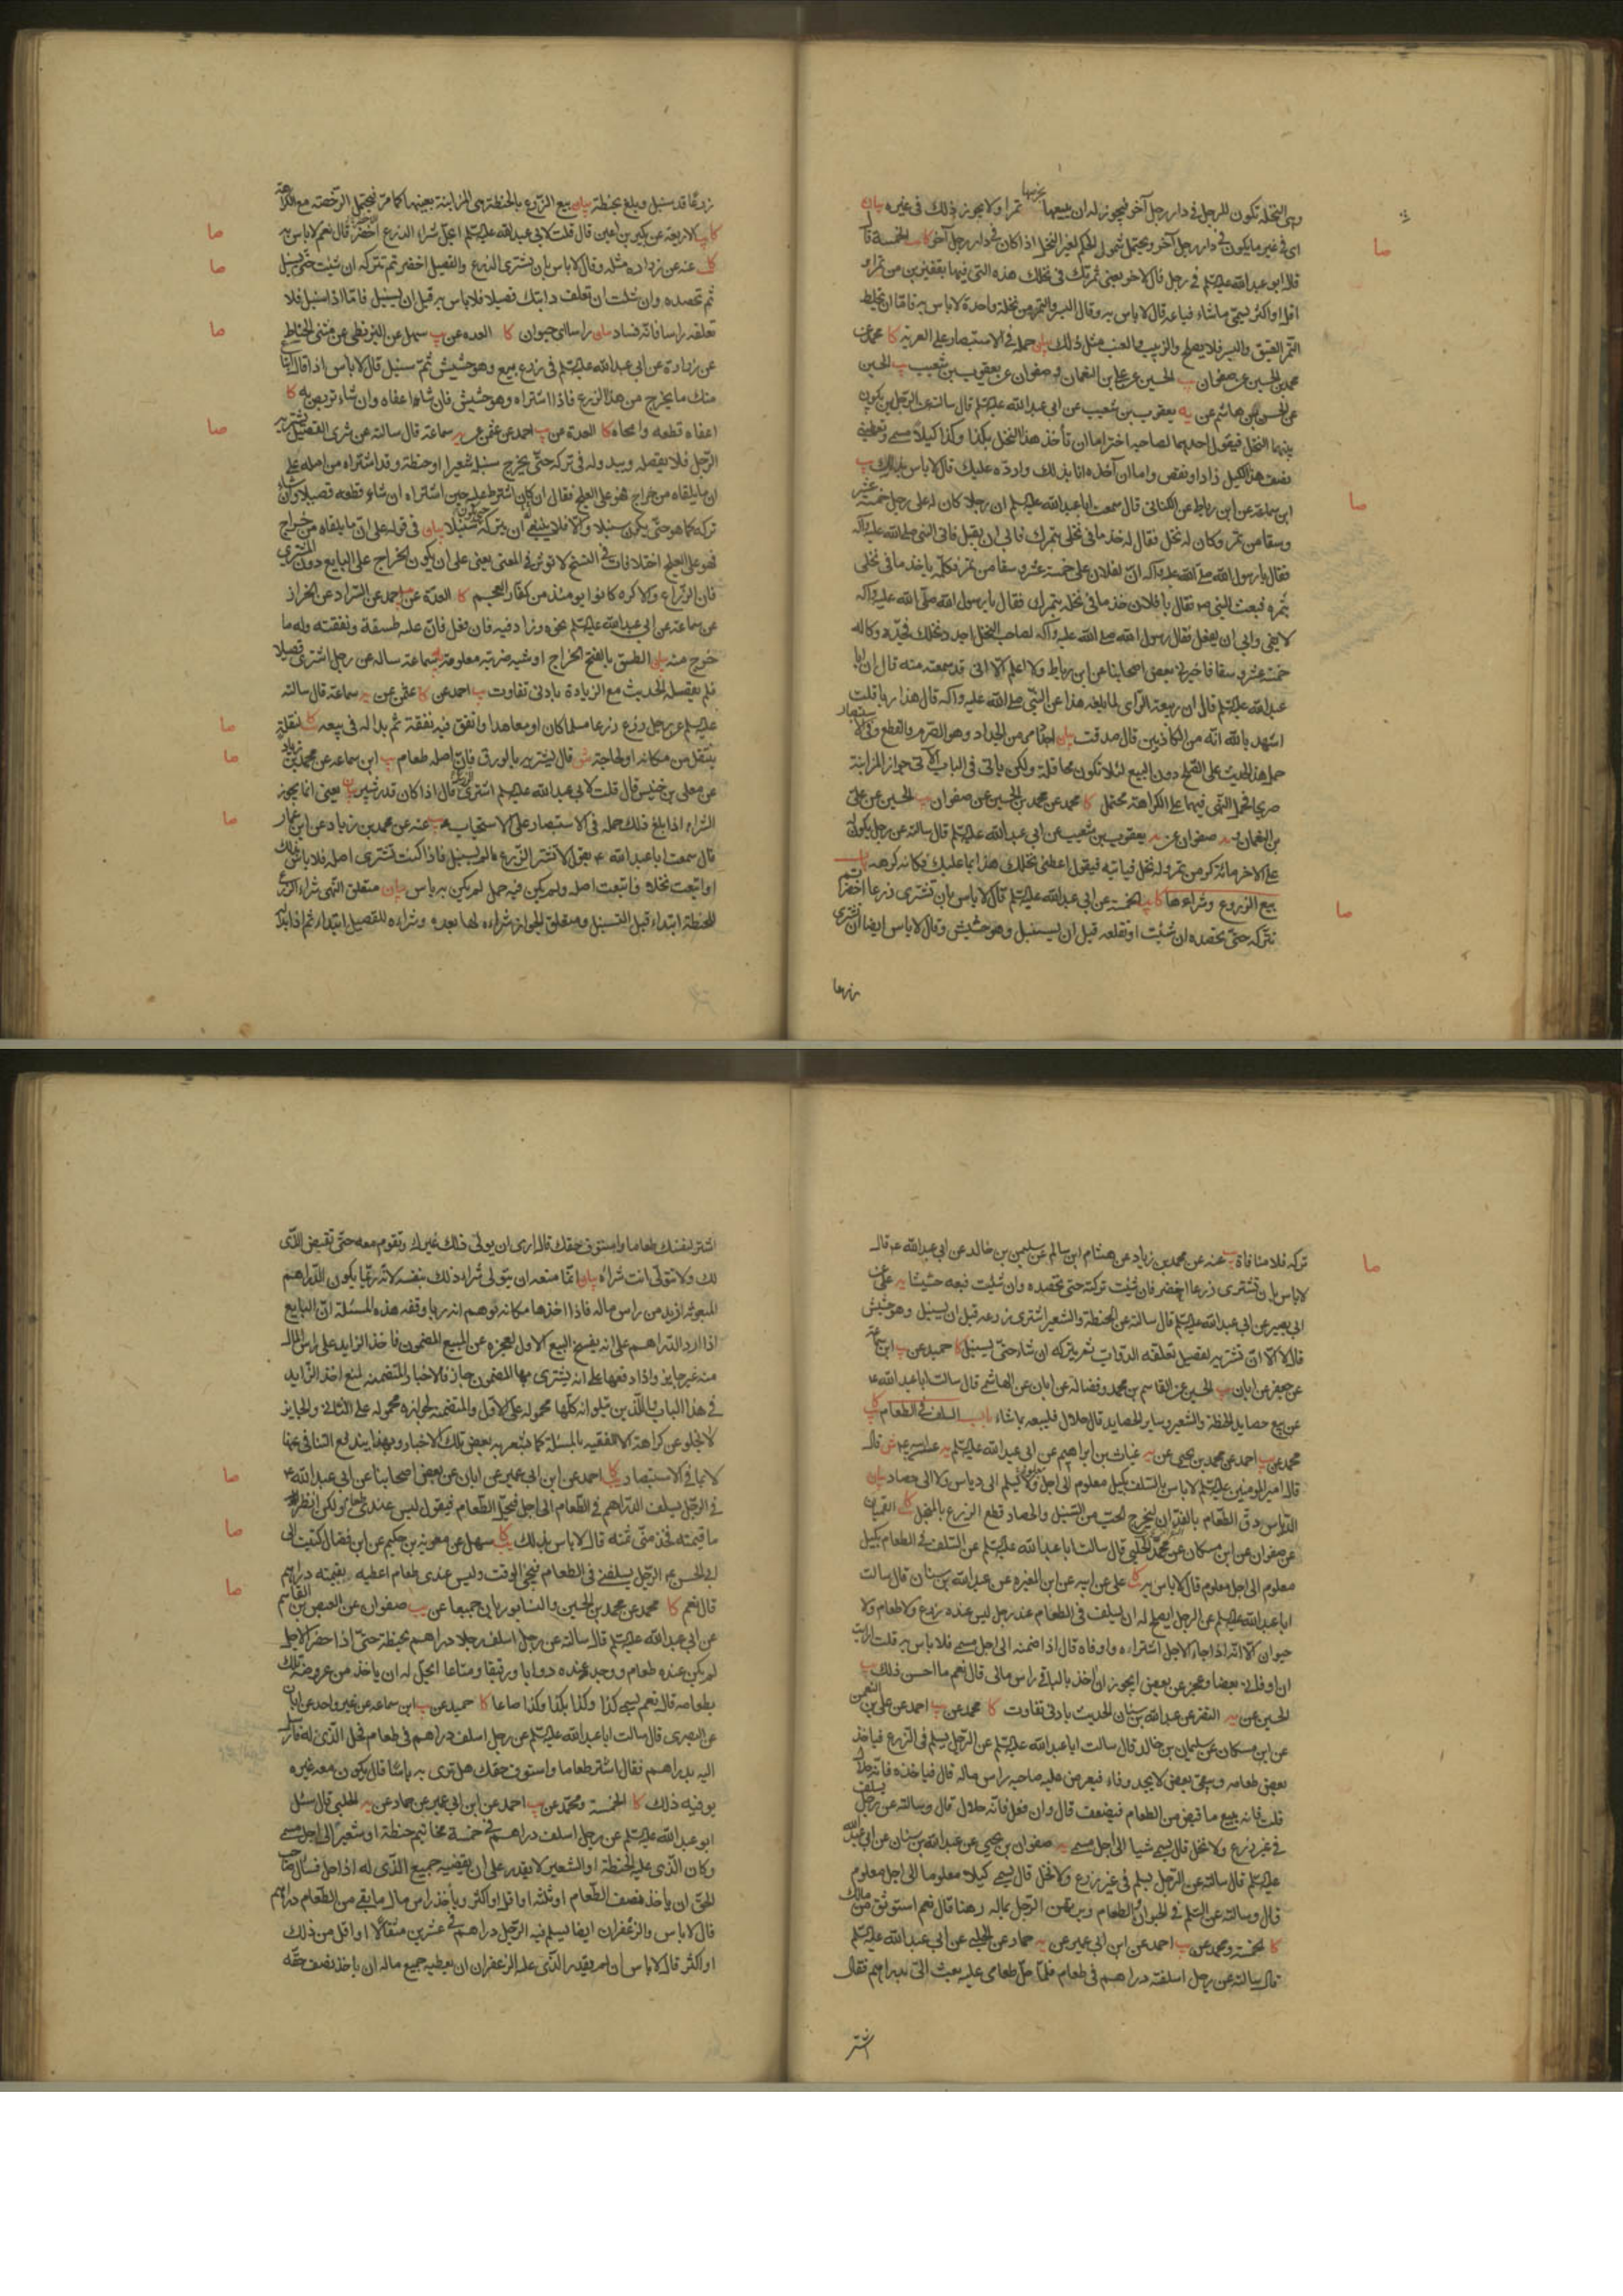 وهى النخلة تكون للرجل فى دار رجل آخر فيجوز له ان يبيعها بخرصها تمرا ولا يجوز ذلك فى غيره بيان
اى فى غير ما يكون فى دار رجل آخر ويحتمل شمول الحكم لغير النخل اذا كان فى دار رجل آخر كا يب الخمسة قال
قال ابو عبد الله عليه السلم فى رجل قال لاخر بعنى ثمرتك فى نخلك هذه التى فيها بقفيزين من تمر او
اقل او اكثر يسمى ما شاء فباعه قال لا باس به وقال البسر والتمر من نخلة واحدة لا باس به فاما ان يخلط
التمر العتيق والبسر فلا يصلح والزبيب والعنب مثل ذلك بيان حمله فى الاستبصار على العرية كا محمد عن
محمد بن الحسين عن صفوان يب الحسين عن على بن النعمان وصفوان عن يعقوب بن شعيب يب الحسين
يعقوب بن شعيب عن ابى عبد الله عليه السلم قال سالته عن الرجلين يكون
بينهما النخل فيقول احدهما لصاحبه اختر اما ان تأخذ هذا النخل بكذا وكذا كيلا مسمى وتعطينى
نصف هذا الكيل زاد او نقص واما ان آخذه انا بذلك وارده عليك قال لا باس بذلك يب
ابن سماعة عن ابن رباط عن الكنانى قال سمعت ابا عبد الله عليه السلم ان رجلا كان له على رجل خمسة عشر
وسقا من تمر وكان له نخل فقال له خذ ما فى نخلى بتمرك فابى ان يقبل فاتى النبى صلى الله عليه وآله
فقال يا رسول الله صلى الله عليه وآله ان لفلان على خمسة عشر وسقا من تمر فكلمه ياخذ ما فى نخلى
بتمره فبعث النبى ص فقال يا فلان خذ ما فى نخله بتمرك فقال يا رسول الله صلى الله عليه وآله
لا يفى وابى ان يفعل فقال رسول الله صلى الله عليه وآله لصاحب النخل اجدد نخلك فجدد وكاله
خمسة عشر وسقا فاخبرنى بعض اصحابنا عن ابن رباط ولا اعلم الا انى قد سمعته منه قال ان ابا
عبد الله عليه السلم قال ان ربيعة الراى لما بلغه هذا عن النبى صلى الله عليه وآله قال هذا ربا قلت
اشهد بالله انه من الكاذبين قال صدقت بيان اجدد امر من الجداد وهو الصرم والقطع وفى الاستبصار
حمل هذا الحديث على الصلح دون البيع لئلا تكون محاقلة ولكن ياتى فى الباب الآتى جواز المزابنة
صريحا فحمل النهى فيهما على الكراهة محتمل كا محمد عن محمد بن الحسين عن صفوان يب الحسين عن على
بن النعمان يه صفوان عن يعقوب بن شعيب عن ابى عبد الله عليه السلم قال سالته عن رجل يكون له
على الاخر مائة كر من تمر وله نخل فياتيه فيقول اعطنى نخلك هذا بما عليك فكانه كرهه باب
بيع الزروع وشراءها كا يب الخمسة عن ابى عبد الله عليه السلم قال لا باس بان تشترى زرعا اخضر ثم
تتركه حتى تحصده ان شئت او تقلعه قبل ان يسنبل وهو حشيش وقال لا باس ايضا ان تشترى
زرعا
زرعا قد سنبل وبلغ بحنطة بيان بيع الزرع بالحنطة هى المزابنة بعينها كما مر فيحتمل الرخصة مع الكراهة
كا يب الاربعة عن بكير بن اعين قال قلت لابى عبد الله عليه السلم ايحل شراء الزرع اخضر قال نعم لا باس به
كا عنه عن زرارة مثله وقال لا باس بان تشترى الزرع والقصيل اخضر ثم تتركه ان شئت حتى يسنبل
ثم تحصده وان شئت ان تعلف دابتك قصيلا فلا باس به قبل ان يسنبل فاما اذا سنبل فلا
تعلفه راسا فانه فساد بيان راسا اى حيوان كا العدة عن يب سهل عن البزنطى عن مثنى الحناط
عن زرارة عن ابى عبد الله عليه السلم فى زرع بيع وهو حشيش ثم سنبل قال لا باس اذا قال ابتاع
منك ما يخرج من هذا الزرع فاذا اشتراه وهو حشيش فان شاء اعفاه وان شاء تربص به كا
اعفاه قطعه وامحاه كا العدة عن يب احمد عن عثمن عن يه سماعة قال سالته عن شرى القصيل يشتريه
الرجل فلا يقصله ويبدو له فى تركه حتى يخرج سنبله شعيرا او حنطة وقد اشتراه من اصله على
ان ما يلقاه من خراج فهو على العلج فقال ان كان اشترط عليه حين اشتراه ان شاء قطعه قصيلا وان شاء
تركه كما هو حتى يكون سنبلا والا فلا ينبغى له ان يتركه حتى يكون سنبلا بيان فى قوله على ان ما يلقاه من خراج
فهو على العلج اختلافات فى النسخ لا تؤثر فى المعنى يعنى على ان يكون الخراج على البايع دون المشترى
فان الزراع والاكره كانوا يومئذ من كفار العجم كا العدة عن احمد عن السراد عن الخراز
عن سماعة عن ابى عبد الله عليه السلم نحوه وزاد فيه فان فعل فان عليه طسقه ونفقته وله ما
خرج منه بيان الطسق بالفتح الخراج او شبه ضريبة معلومة يه سماعة ساله عن رجل اشترى قصيلا
فلم يقصله الحديث مع الزيادة بادنى تفاوت يب احمد عن كا عثمن عن يه سماعة قال سالته
عليه السلم عن رجل زرع زرعا مسلما كان او معاهدا وانفق فيه نفقة ثم بدا له فى بيعه كا لنقلة
ينتقل من مكانه او لحاجة ش قال يشتريه بالورق فان اصله طعام يب ابن سماعة عن محمد بن زياد
عن معلى بن خنيس قال قلت لابى عبد الله عليه السلم اشترى الزرع قال اذا كان قدر شبر بيان يعنى انما يجوز
الشراء اذا بلغ ذلك حمله فى الاستبصار على الاستحباب يب عنه عن محمد بن زياد عن ابن عمار
قال سمعت ابا عبد الله ع يقول لا تشتر الزرع ما لم يسنبل فاذا كنت تشترى اصله فلا باس بذلك
او ابتعت نخلا فابتعت اصله ولم يكن فيه حمل لم يكن به باس بيان متعلق النهى شراء الزرع
للحنطة ابتداء قبل التسنبل ومتعلق الجواز شراءه لها بعده وشراءه للقصيل ابتداء ثم اذا بدا
تركه فلا منافاة يب عنه عن محمد بن زياد عن هشام ابن سالم عن سليمن بن خالد عن ابى عبد الله ع قال
لا باس بان تشترى زرعا اخضر فان شئت تركته حتى تحصده وان شئت فبعه حشيشا يه على عن
ابى بصير عن ابى عبد الله عليه السلم قال سالته عن الحنطة والشعير اشترى زرعه قبل ان يسنبل وهو حشيش
قال لا الا ان تشتريه لقصيل تعلفه الدواب ثم يتركه ان شاء حتى يسنبل كا حميد عن يب ابن سماعة
عن جعفر عن ابان يب الحسين عن القاسم بن محمد وفضالة عن ابان عن الهاشمى قال سالت ابا عبد الله ع
عن بيع حصايد الحنطة والشعير وساير الحصايد قال حلال فليبعه بما شاء باب السلف فى الطعام كا
محمد عن يب احمد عن محمد بن يحيى عن يه غياث بن ابراهيم عن ابى عبد الله عليه السلم يه عن ابيه ع ش قال
قال امير المؤمنين عليه السلم لا باس بالسلف بكيل معلوم الى اجل معلوم ولا يسلم الى دياس ولا الى حصاد بيان
الدياس دق الطعام بالفدان ليخرج الحب من السنبل والحصاد قطع الزرع بالمنجل كا القميان
عن صفوان عن ابن مسكان عن محمد الحلبى قال سالت ابا عبد الله عليه السلم عن السلف فى الطعام بكيل
معلوم الى اجل معلوم قال لا باس به كا على عن ابيه عن ابن المغيرة عن عبد الله بن سنان قال سالت
ابا عبد الله عليه السلم عن الرجل ايصلح له ان يسلف فى الطعام عند رجل ليس عنده زرع ولا طعام ولا
حيوان الا انه اذا جاء الاجل اشتراه واوفاه قال اذا ضمنه الى اجل مسمى فلا باس به قلت ارايت
ان اوفانى بعضا وعجز عن بعض ايجوز ان آخذ بالباقى راس مالى قال نعم ما احسن ذلك يب
الحسين عن يه النضر عن عبد الله بن سنان الحديث بادنى تفاوت كا محمد عن يب احمد عن على بن النعمن
عن ابن مسكان عن سليمان بن خالد قال سالت ابا عبد الله عليه السلم عن الرجل يسلم فى الزرع فياخذ
بعض طعامه ويبقى بعض لا يجد وفاء فيعرض عليه صاحبه راس ماله قال فياخذه فانه حلال
قلت فانه يبيع ما قبض من الطعام فيضعف قال وان فعل فانه حلال قال وسالته عن رجل يسلف
فى غير زرع ولا نخل قال يسمى شيئا الى اجل مسمى يه صفوان بن يحيى عن عبد الله بن سنان عن ابى عبد الله
عليه السلم قال سالته عن الرجل يسلم فى غير زرع ولا نخل قال يسمى كيلا معلوما الى اجل معلوم
قال وسالته عن السلم فى الحيوان والطعام ويرتهن الرجل بماله رهنا قال نعم استوثق من مالك
كا الخمسة ومحمد عن يب احمد عن ابن ابى عمير عن يه حماد عن الحلبى عن ابى عبد الله عليه السلم
قال سالته عن رجل اسلفته دراهم فى طعام فلما حل طعامى عليه بعث الى بدراهم فقال
اشتر
اشتر لنفسك طعاما واستوف حقك قال ارى ان يولى ذلك غيرك وتقوم معه حتى تقبض الذى
لك ولا تتولى انت شراءه بيان انما منعه ان يتولى شراء ذلك بنفسه لانه ربما يكون الدراهم
المبعوثة ازيد من راس ماله فاذا اخذها مكانه توهم انه ربا وفقه هذه المسئلة ان البايع
اذا رد الدراهم على انه يفسخ البيع الاول لعجزه عن المبيع المضمون فاخذ الزايد على راس المال
منه غير جايز واذا دفعها على انه يشترى بها المضمون جاز فالاخبار المتضمنة لمنع اخذ الزايد
فى هذا الباب واللذين يتلوانه كلها محمولة على الاول والمتضمنة لجوازه محمولة على الثانى والجايز
لا يخلو عن كراهة الا للفقيه بالمسئلة كما يشعر به بعض تلك الاخبار وبهذا يندفع التنافى عنها
لا بما فى الاستبصار كا احمد عن ابن ابى عمير عن ابان عن بعض اصحابنا عن ابى عبد الله ع
فى الرجل يسلف الدراهم فى الطعام الى اجل فيحل الطعام فيقول ليس عندى طعام ولكن انظر
ما قيمته فخذ منى ثمنه قال لا باس بذلك كا سهل عن معوية بن حكيم عن ابن فضال كتبت الى
ابى الحسن ع الرجل يسلفنى فى الطعام فيجئ الوقت وليس عندى طعام اعطيه بقيمته دراهم
قال نعم كا محمد عن محمد بن الحسين والنيسابوريان جميعا عن يب صفوان عن العيص بن القاسم
عن ابى عبد الله عليه السلم قال سالته عن رجل اسلف رجلا دراهم بحنطة حتى اذا حضر الاجل
لم يكن عنده طعام ووجد عنده دوابا ورقيقا ومتاعا ايحل له ان ياخذ من عروضه تلك
بطعامه قال نعم يسمى كذا وكذا بكذا وكذا صاعا كا حميد عن يب ابن سماعة عن غير واحد عن ابان
عن البصرى قال سالت ابا عبد الله عليه السلم عن رجل اسلف دراهم فى طعام فحل الذى له فارسل
اليه بدراهم فقال اشتر طعاما واستوف حقك هل ترى به باسا قال يكون معه غيره
يوفيه ذلك كا الخمسة ومحمد عن يب احمد عن ابن ابى عمير عن حماد عن يه الحلبى قال سئل
ابو عبد الله عليه السلم عن رجل اسلف دراهم فى خمسة مخاتيم حنطة او شعير الى اجل مسمى
وكان الذى عليه الحنطة او الشعير لا يقدر على ان يقضيه جميع الذى له اذا حل فسال صاحب
الحق ان ياخذ نصف الطعام او ثلثه او اقل او اكثر ويأخذ راس مال ما بقى من الطعام دراهم
قال لا باس والزعفران ايضا يسلم فيه الرجل دراهم فى عشرين مثقالا او اقل من ذلك
او اكثر قال لا باس ان لم يقدر الذى عليه الزعفران ان يعطيه جميع ماله ان ياخذ نصف حقه